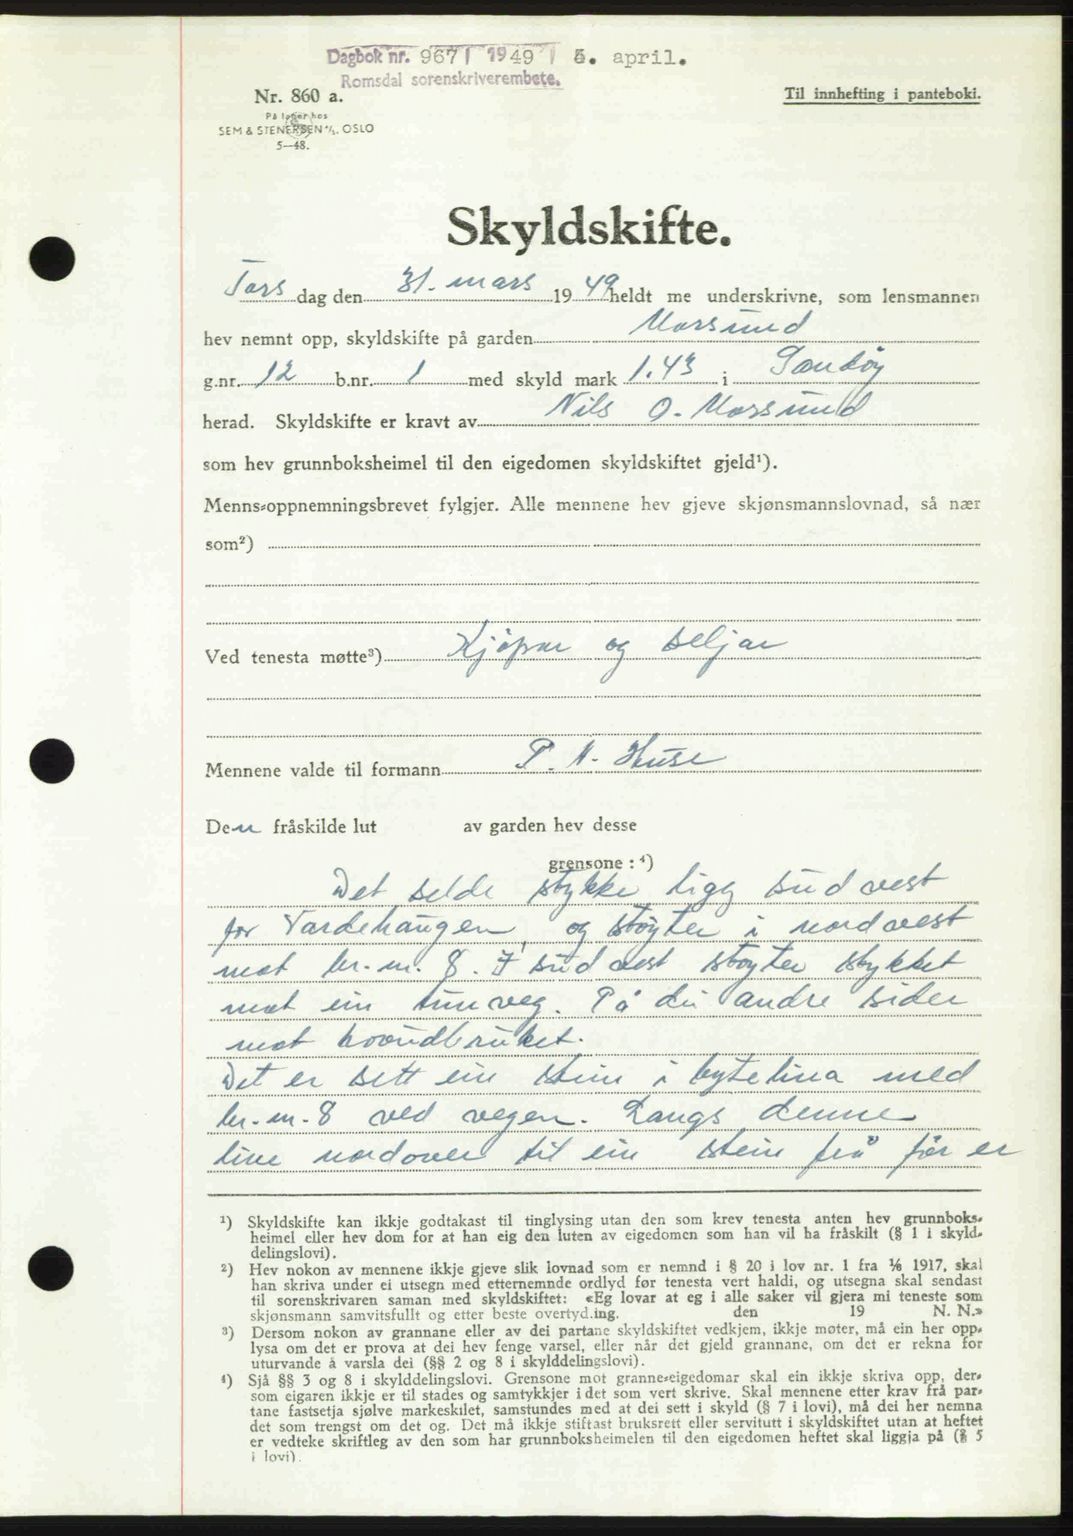 Dagbok nr. 967 / 1949 / 5. april.
Romsdal sorenskriverembete.
Nr. 860 a.
Til innhefting i panteboki.
På lager hos
SEM & STENERSEN A/S. OSLO
5—48.
Skyldskifte.
Tors dag den 31. mars 19 49 heldt me underskrivne, som lensmannen
hev nemnt opp, skyldskifte på garden Morsund
g.nr. 12 b.nr. 1 med skyld mark 1.43 i Sandøy
herad. Skyldskifte er kravt av Nils O. Morsund
som hev grunnboksheimel til den eigedomen skyldskiftet gjeld¹).
Menns-oppnemningsbrevet fylgjer. Alle mennene hev gjeve skjønsmannslovnad, så nær
som²)
Ved tenesta møtte³) Kjöpar og seljar
Mennene valde til formann P. A. Huse
Den fråskilde lut av garden hev desse
grensone : ⁴)
Det selde stykke ligg sud vest
for Vardehaugen, og støyter i nordvest
mot br. nr. 8. I sudvest støyter stykket
mot ein tunveg. På dei andre sider
mot hovudbruket.
Det er sett ein stein i bytelina med
br. nr. 8 ved vegen. Langs denne
line nordover til ein stein frå før er
¹) Skyldskifte kan ikkje godtakast til tinglysing utan den som krev tenesta anten hev grunnboks-
heimel eller hev dom for at han eig den luten av eigedomen som han vil ha fråskilt (§ 1 i skyld-
delingslovi).
²) Hev nokon av mennene ikkje gjeve slik lovnad som er nemnd i § 20 i lov nr. 1 fra 1/6 1917, skal
han skriva under ei utsegn med etternemnde ordlyd før tenesta vert haldi, og utsegna skal sendast
til sorenskrivaren saman med skyldskiftet: «Eg lovar at eg i alle saker vil gjera mi teneste som
skjønsmann samvitsfullt og etter beste overtyd.ing. den 19 N. N.»
³) Dersom nokon av grannane eller av dei partane skyldskiftet vedkjem, ikkje møter, må ein her opp-
lysa om det er prova at dei hev fenge varsel, eller når det gjeld grannane, om det er rekna for
uturvande å varsla dei (§§ 2 og 8 i skylddelingslovi).
⁴) Sjå §§ 3 og 8 i skylddelingslovi. Grensone mot granne-eigedomar skal ein ikkje skriva opp, der-
som eigaren ikkje er til stades og samtykkjer i det som vert skrive. Skal mennene etter krav frå par-
tane fastsetja sjølve markeskilet, samstundes med at dei sett i skyld (§ 7 i lovi), må dei her nemna
det som trengst om det og. Det må ikkje stiftast bruksrett eller servitutt i skyldskiftet utan at heftet
er vedteke skriftleg av den som har grunnboksheimelen til den eigedomen heftet skal liggja på (§ 5
i lovi).